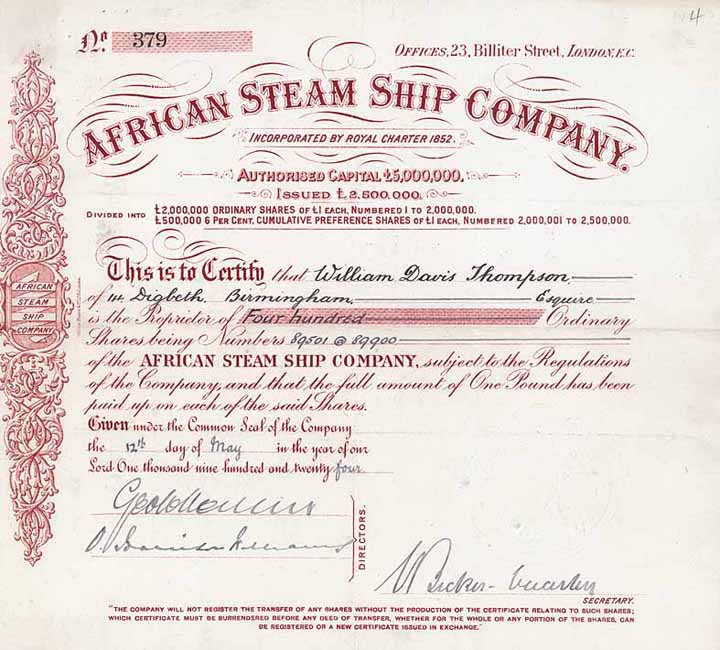 4
No. 379
OFFICES, 23, Billiter Street, LONDON, E.C.
AFRICAN STEAM SHIP COMPANY.
INCORPORATED BY ROYAL CHARTER 1852.
AUTHORISED CAPITAL £5,000,000.
ISSUED £2,500,000.
DIVIDED INTO
£2,000,000 ORDINARY SHARES OF £1 EACH, NUMBERED 1 TO 2,000,000.
£500,000 6 PER CENT. CUMULATIVE PREFERENCE SHARES OF £1 EACH, NUMBERED 2,000,001 TO 2,500,000.
This is to Certify that William Davis Thompson
of 14 Digbeth. Birmingham Esquire
is the Proprietor of Four hundred Ordinary
Shares being Numbers 89501 @ 89900
of the AFRICAN STEAM SHIP COMPANY, subject to the Regulations
of the Company, and that the full amount of One Pound has been
paid up on each of the said Shares.
Given under the Common Seal of the Company
the 12th day of May in the year of our
Lord One thousand nine hundred and twenty four
AFRICAN
STEAM
SHIP
COMPANY
DIRECTORS.
SECRETARY.
"THE COMPANY WILL NOT REGISTER THE TRANSFER OF ANY SHARES WITHOUT THE PRODUCTION OF THE CERTIFICATE RELATING TO SUCH SHARES;
WHICH CERTIFICATE MUST BE SURRENDERED BEFORE ANY DEED OF TRANSFER, WHETHER FOR THE WHOLE OR ANY PORTION OF THE SHARES, CAN
BE REGISTERED OR A NEW CERTIFICATE ISSUED IN EXCHANGE."